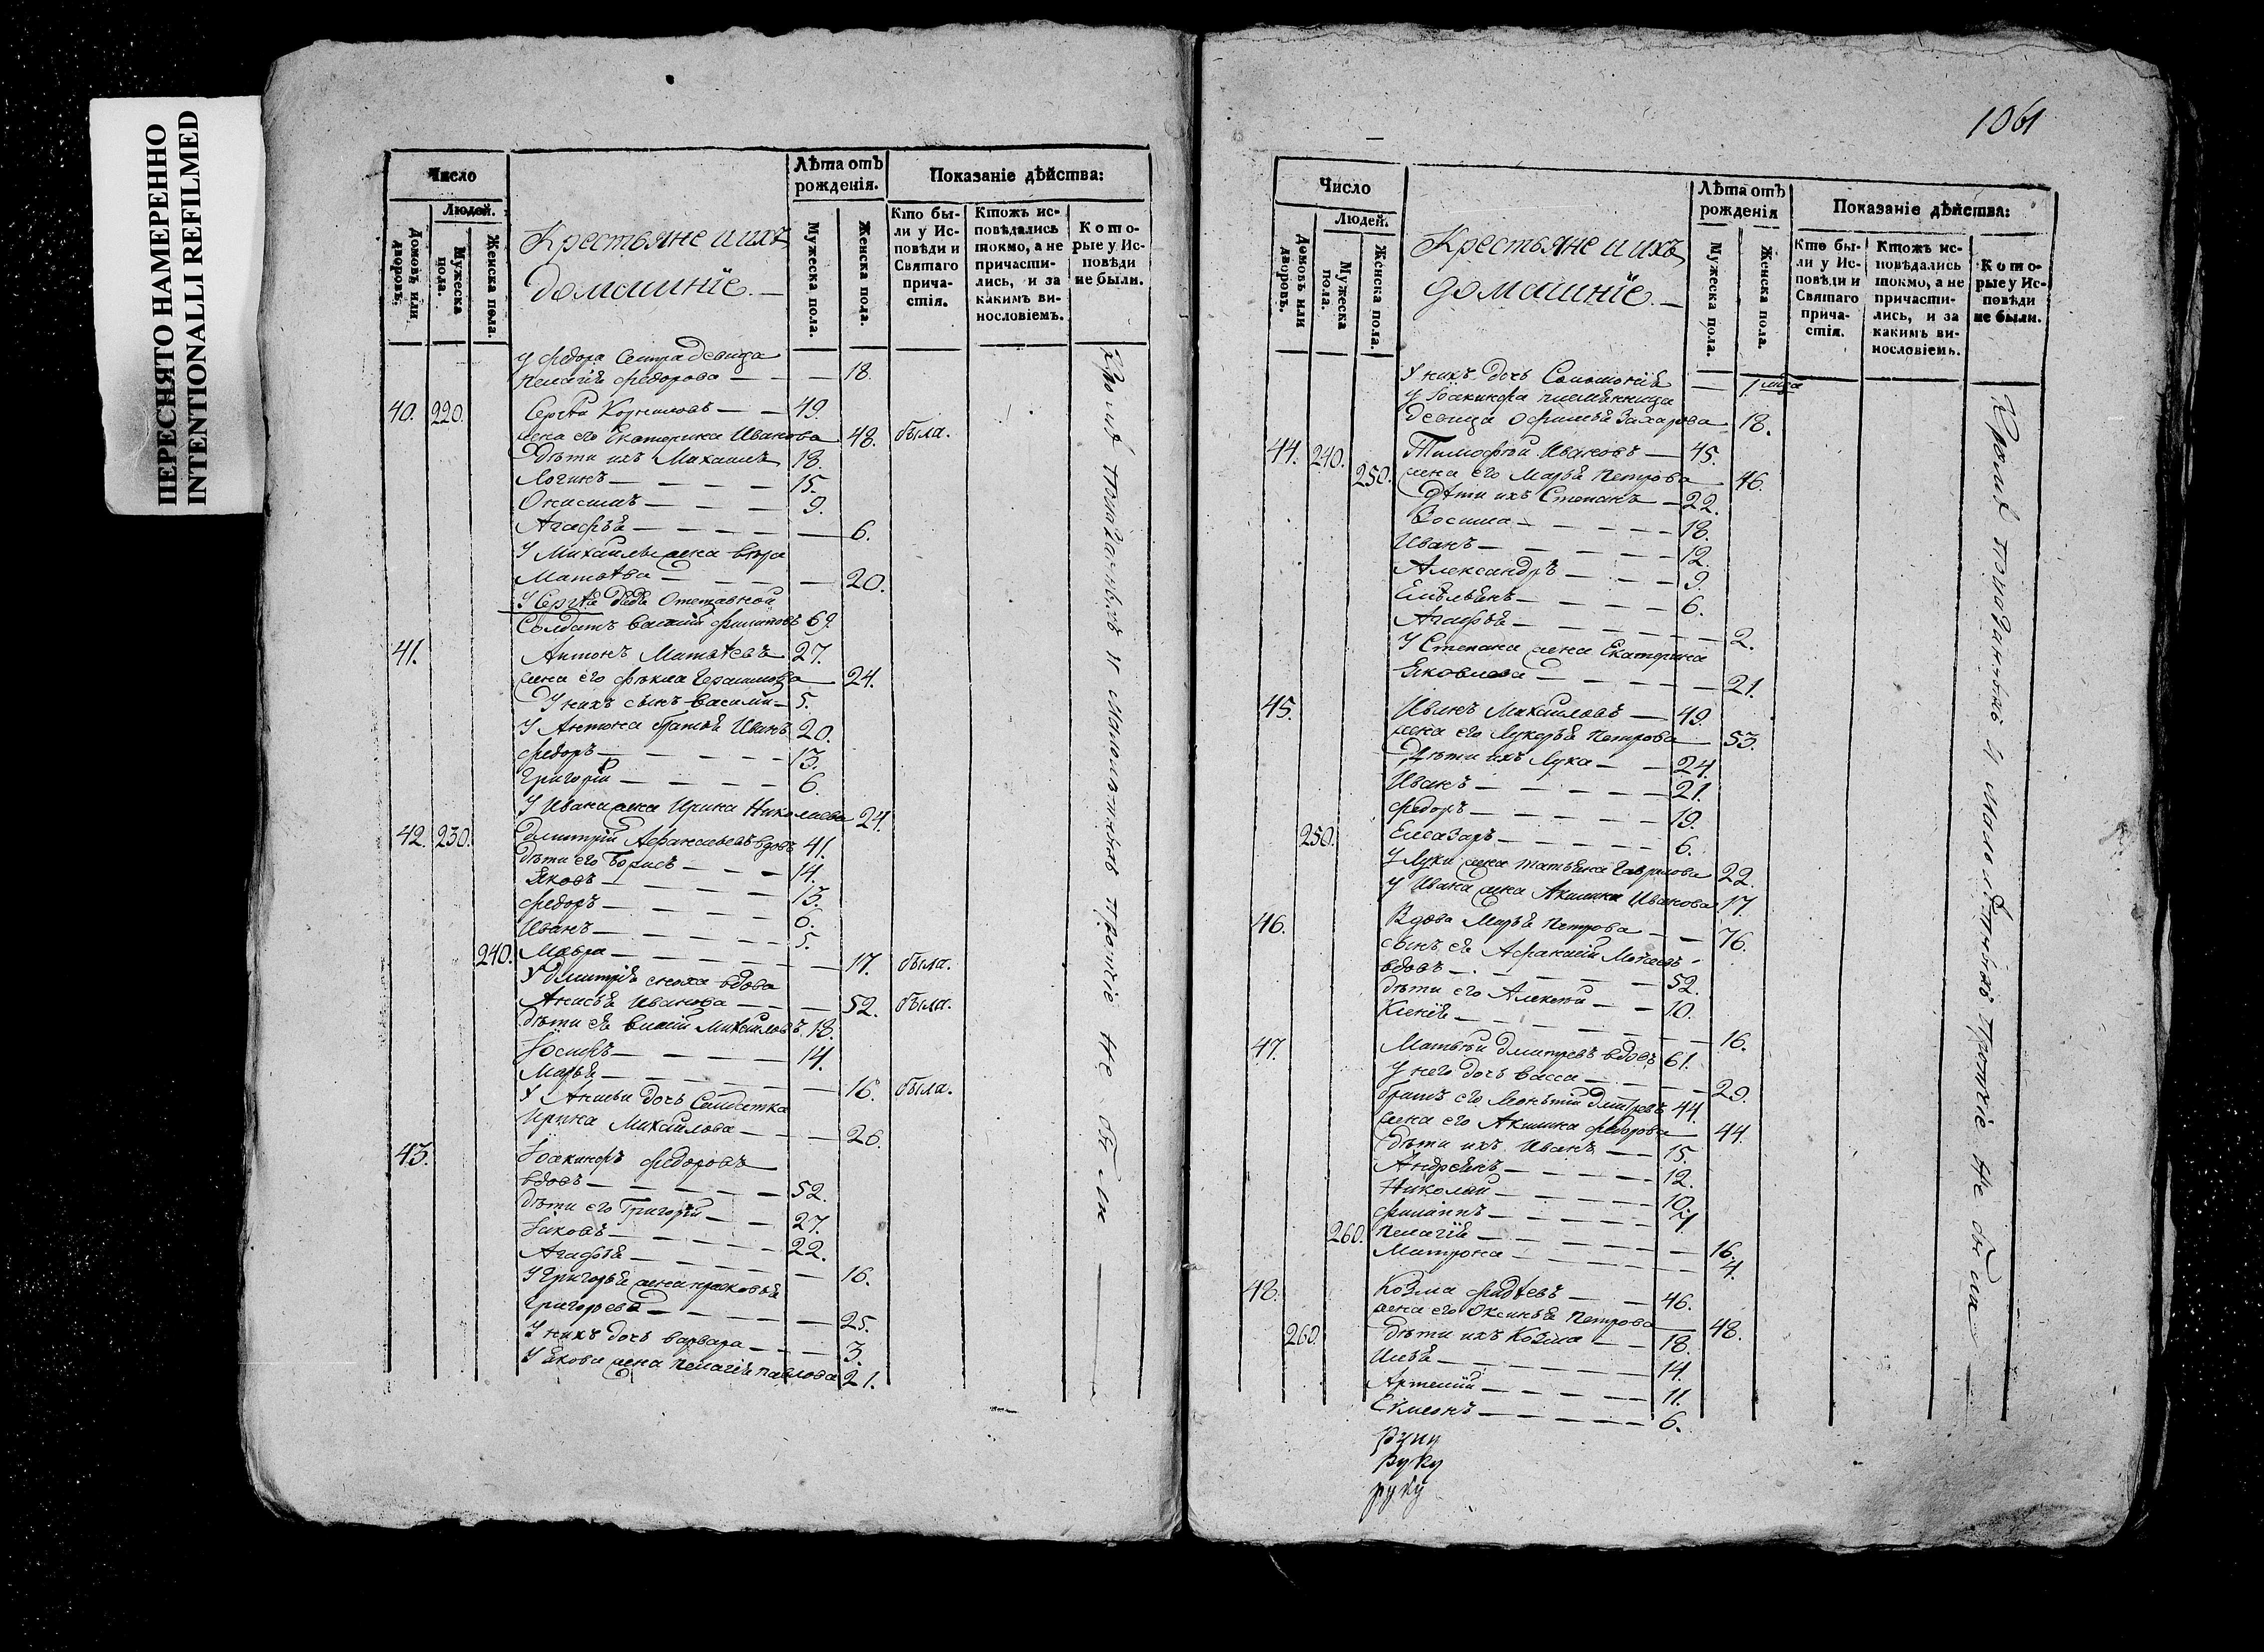 ПЕРЕСНЯТО НАМЕРЕННО
INTENTIONALLI REFILMED
Число
Людей.
Домовъ или дворовъ.
Мужеска пола.
Женска пола.
Крестьяне и ихъ
домашніе.
Лѣта отъ рожденія.
Мужеска пола.
Женска пола.
Показаніе дѣйства:
Кто бы-
ли у Ис-
повѣди и
Святаго
прича-
стія.
Ктожъ ис-
повѣдались
токмо, а не
причасти-
лись, и за
какимъ ви-
нословіемъ.
Кото-
рые у Ис-
повѣди
не были.
У Федора сестра девица
Пелагія Федорова — — — 18.
40. 220. Сергѣй Корниловъ — — 49.
жена его Екатерина Иванова 48. была.
Дѣти ихъ Михаилъ 18.
Логинъ — — — — 15.
Онисимъ — — — — 9.
Агафья — — — — — 6.
У Михаилы жена
Матвѣва — — — — — 20.
У Сергѣя дядя Отставной
Солдатъ Василій Филиповъ 69.
41. Антонъ Матвѣевъ 27.
жена его Фекла Герасимова 24.
У нихъ сынъ Василий — 5.
У Антона братья Иванъ 20.
Федоръ — — — — 13.
Григорій — — — — 6.
У Ивана жена Ирина Николаева 24.
42. 230. Дмитрій Афанасьевъ вдовъ 41.
Дѣти его Борисъ — — — 14.
Яковъ — — — — 13.
Федоръ — — — — 6.
Иванъ — — — — 5.
240. Мавра — — — — — 17. была.
У Дмитрія сноха вдова
Анисья Иванова — — — 52. была.
Дѣти ея Василій Михайловъ 18.
Іосифъ — — — — 14.
Марья — — — — — 16. была.
У Анисьи дочь Солдатка
Ирина Михайлова — — — 26.
43. Іоакинфъ Федоровъ
вдовъ — — — — — 52.
Дѣти его Григорій — — 27.
Іаковъ — — — — 22.
Агафья — — — — — 16.
У Григорья жена Прасковья
Григорьева — — — — 25.
У нихъ дочь Варвара — — — 3.
У Якова жена Пелагія Павлова 21.
Кромѣ показанныхъ и малолѣтныхъ прочіе не были
1061
Число
Людей.
Домовъ или дворовъ.
Мужеска пола.
Женска пола.
Крестьяне и ихъ
домашніе.
Лѣта отъ рожденія
Мужеска пола.
Женска пола.
Показаніе дѣйства:
Кто бы-
ли у Ис-
повѣди и
Святаго
прича-
стія.
Ктожъ ис-
повѣдались
токмо, а не
причасти-
лись, и за
какимъ ви-
нословіемъ.
Кото-
рые у Ис-
повѣди
не были.
У нихъ дочь Соломонія — 1.
У Іоакинфа племянница
Девица Офимья Захарова 18.
44. 240. Тимофѣй Ивановъ — 45.
250. жена его Марья Петрова 46.
Дѣти ихъ Степанъ — 22.
Зосима — — — — 18.
Иванъ — — — — 12.
Александръ — — — 9.
Емельянъ — — — — 6.
Агафья — — — — — 2.
У Степана жена Екатерина
Яковлева — — — — 21.
45. Иванъ Михайловъ — 49.
жена его Лукерья Петрова 53.
Дѣти ихъ Лука — — 24.
Иванъ — — — — 21.
Федоръ — — — — 19.
250. Елеазаръ — — — — 6.
У Луки жена Татьяна Гаврилова 22.
У Ивана жена Акилина Иванова 17.
46. Вдова Марья Петрова — — 76.
сынъ ея Афанасій
вдовъ — — — — 52.
Дѣти его Алексѣй — — 10.
Ксенія — — — — — 16.
47. Матвѣй Дмитревъ вдовъ 61.
У него дочь Васса — — — 29.
братъ его Дмитревъ 44.
жена его Акилина Федорова 44.
Дѣти ихъ Иванъ — — 15.
Андреянъ — — — — 12.
Николай — — — — 10.
Филиппъ — — — — 7.
260. Пелагія — — — — — 16.
Матрона — — — — — 4.
48. Козма Фадѣевъ — — 46.
жена его Оксинья Петрова 48.
260. Дѣти ихъ Козма — — 18.
Илья — — — — 14.
Артемій — — — — 11.
Симеонъ — — — — 6.
Кромѣ показанныхъ и малолѣтныхъ прочіе не были
руку
руку